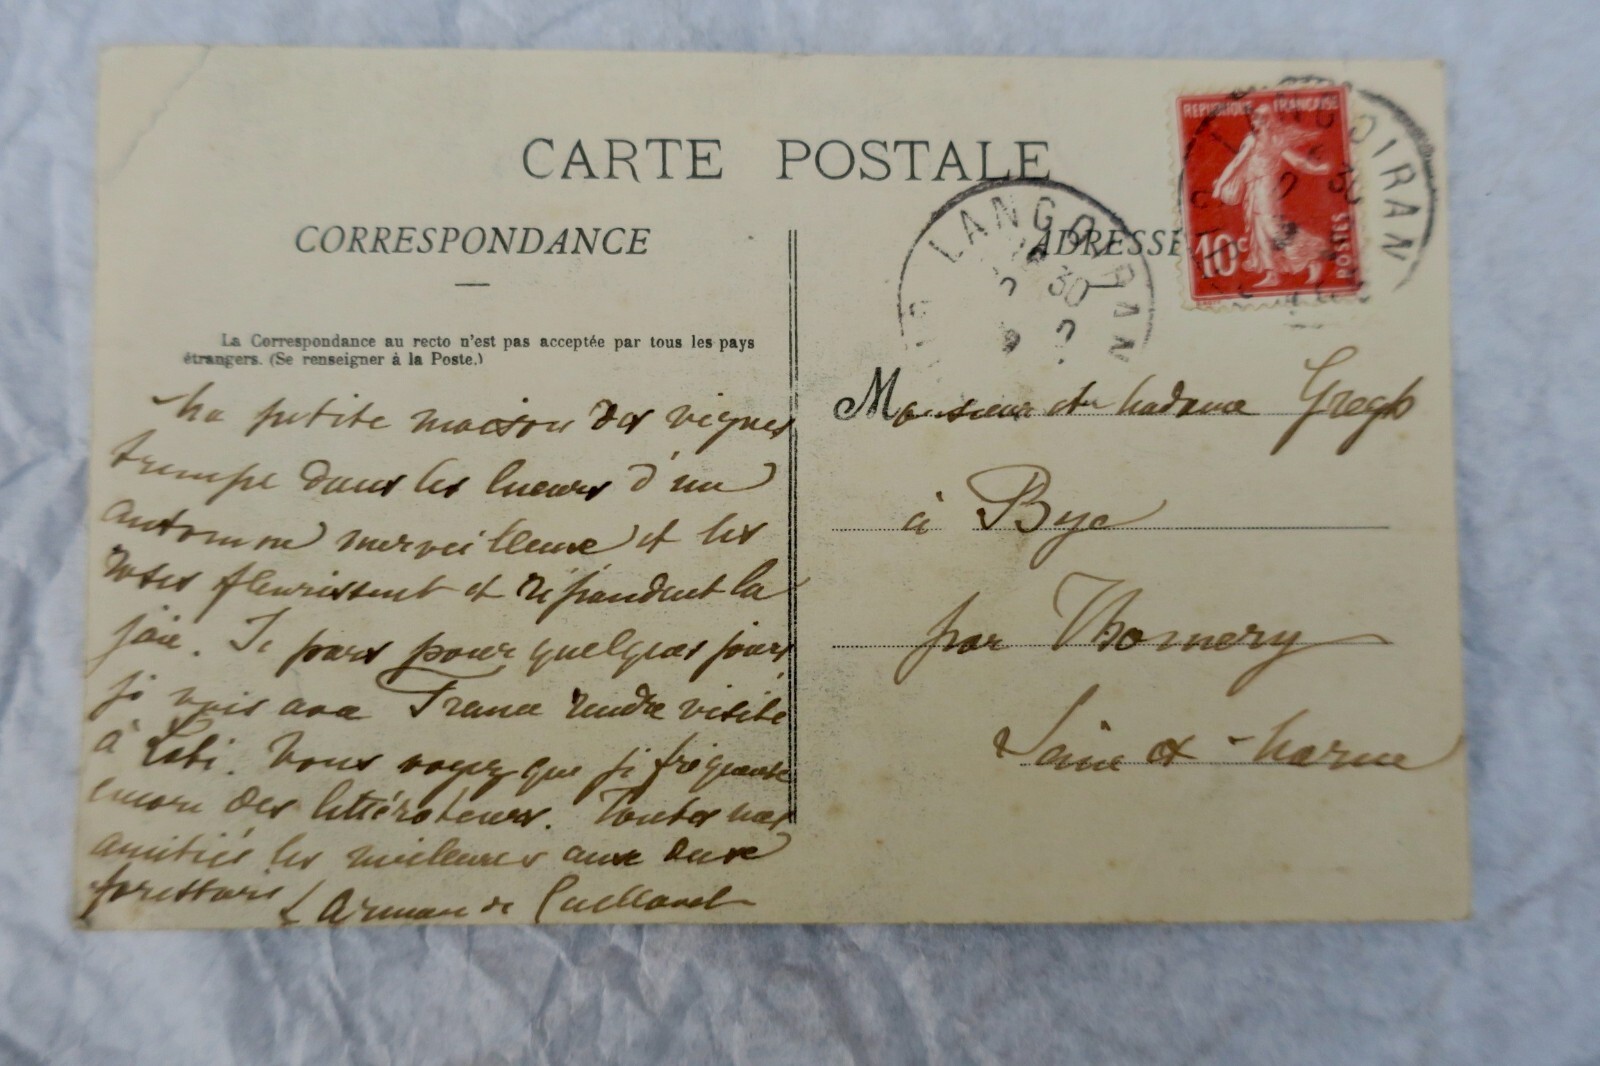 CARTE POSTALE
CORRESPONDANCE
La Correspondance au recto n'est pas acceptée par tous les pays
étrangers. (Se renseigner à la Poste.)
Ma petite maison des vignes
trempe dans les lueurs d'un
automne merveilleux et les
roses fleurissent et répandent la
joie. Je pars pour quelques jours
je vais avec France rendre visite
à Loti. Vous voyez que je fréquente
encore des littérateurs. Toutes mes
amitiés les meilleures aux deux
forestiers L Arman de Caillavet
ADRESSE
REPUBLIQUE FRANÇAISE
10c POSTES
LANGOIRAN
LANGOIRAN
30
Monsieur et Madame Gregh
à Bye
par Thomery
Seine et Marne